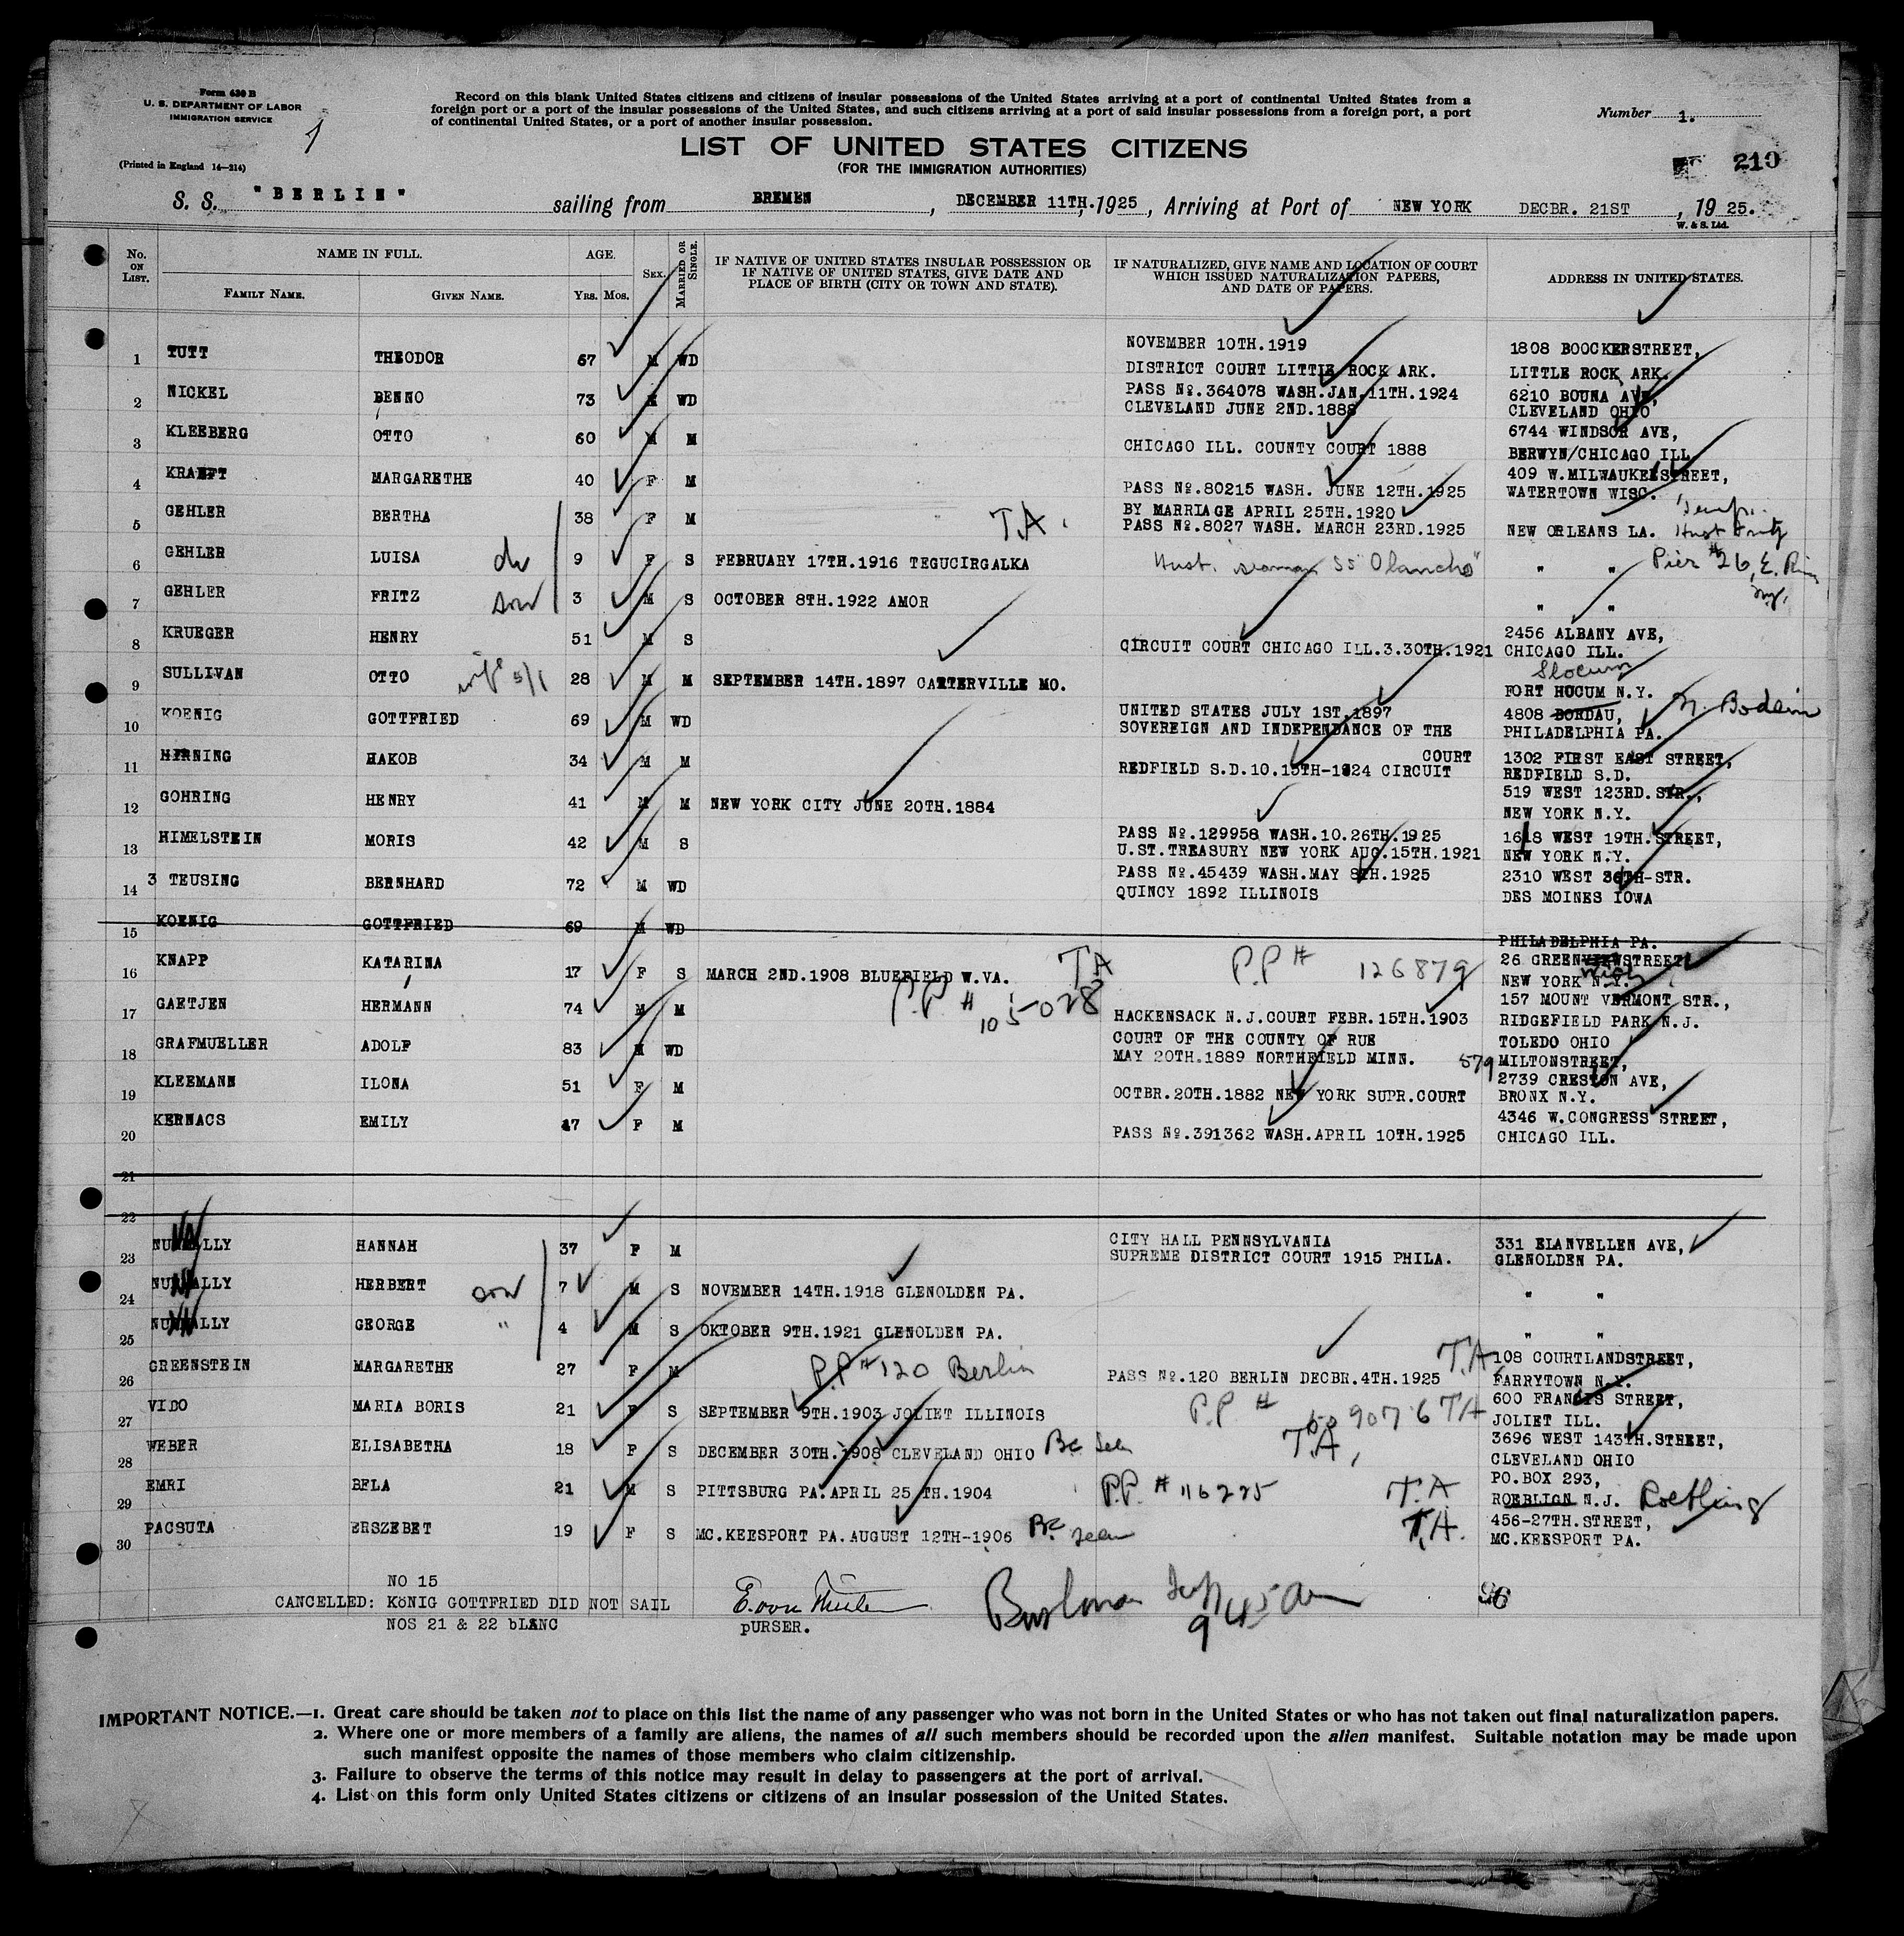 Form 630 B
U. S. DEPARTMENT OF LABOR
IMMIGRATION SERVICE
(Printed in England 14—214)
Record on this blank United States citizens and citizens of insular possessions of the United States arriving at a port of continental United States from a
foreign port or a port of the insular possessions of the United States, and such citizens arriving at a port of said insular possessions from a foreign port, a port
of continental United States, or a port of another insular possession.
Number 1.
LIST OF UNITED STATES CITIZENS
(FOR THE IMMIGRATION AUTHORITIES)
210
S. S. "BERLIN" sailing from BREMEN, DECEMBER 11TH. 1925, Arriving at Port of NEW YORK DECBR. 21ST, 1925.
W. & S. Ltd.
No. ON LIST. NAME IN FULL. FAMILY NAME. GIVEN NAME. AGE. YRS. MOS. SEX. MARRIED OR SINGLE.
IF NATIVE OF UNITED STATES INSULAR POSSESSION OR IF NATIVE OF UNITED STATES, GIVE DATE AND PLACE OF BIRTH (CITY OR TOWN AND STATE).
IF NATURALIZED, GIVE NAME AND LOCATION OF COURT WHICH ISSUED NATURALIZATION PAPERS, AND DATE OF PAPERS.
ADDRESS IN UNITED STATES.
1 TUTT THEODOR 67 M WD NOVEMBER 10TH.1919 DISTRICT COURT LITTLE ROCK ARK. 1808 BOOCKERSTREET, LITTLE ROCK ARK.
2 NICKEL BENNO 73 M WD PASS Nº.364078 WASH.JAN.11TH.1924 CLEVELAND JUNE 2ND.1888 6210 BOUNA AVE, CLEVELAND OHIO
3 KLEEBERG OTTO 60 M M CHICAGO ILL. COUNTY COURT 1888 6744 WINDSOR AVE, BERWYN/CHICAGO ILL.
4 KRAFFT MARGARETHE 40 F M PASS Nº.80215 WASH. JUNE 12TH.1925 409 W.MILWAUKEESTREET, WATERTOWN WISC.
5 GEHLER BERTHA 38 F M T.A. BY MARRIAGE APRIL 25TH.1920 PASS Nº.8027 WASH. MARCH 23RD.1925 NEW ORLEANS LA.
6 GEHLER LUISA 9 F S FEBRUARY 17TH.1916 TEGUCIRGALKA Hust. seaman SS Olancho" " " Pier #26, E. River
7 GEHLER FRITZ son 3 M S OCTOBER 8TH.1922 AMOR " " N.Y.
8 KRUEGER HENRY 51 M S CIRCUIT COURT CHICAGO ILL.3.30TH.1921 2456 ALBANY AVE, CHICAGO ILL.
9 SULLIVAN OTTO wife 5/1 28 M M SEPTEMBER 14TH.1897 CARTERVILLE MO. Slocum FORT HOCUM N.Y.
10 KOENIG GOTTFRIED 69 M WD UNITED STATES JULY 1ST.1897 SOVEREIGN AND INDEPENDANCE OF THE COURT 4808 BORDAU, N. Bodein PHILADELPHIA PA.
11 HIRNING HAKOB 34 M M REDFIELD S.D.10.15TH-1924 CIRCUIT 1302 FIRST EAST STREET, REDFIELD S.D.
12 GOHRING HENRY 41 M M NEW YORK CITY JUNE 20TH.1884 519 WEST 123RD.STR., NEW YORK N.Y.
13 HIMELSTEIN MORIS 42 M S PASS Nº.129958 WASH.10.26TH.1925 U.ST.TREASURY NEW YORK AUG.15TH.1921 1618 WEST 19TH.STREET, NEW YORK N.Y.
14 3 TEUSING BERNHARD 72 M WD PASS Nº.45439 WASH.MAY 8TH.1925 QUINCY 1892 ILLINOIS 2310 WEST 36TH-STR. DES MOINES IOWA
15 KOENIG GOTTFRIED 69 M WD PHILADELPHIA PA.
16 KNAPP KATARINA 17 F S MARCH 2ND.1908 BLUEFIELD W.VA. TA P.P # 126879 26 GREENWICHSTREET NEW YORK N.Y.
17 GAETJEN HERMANN 74 M M P.P # 105028 HACKENSACK N.J.COURT FEBR.15TH.1903 157 MOUNT VERMONT STR., RIDGEFIELD PARK N.J.
18 GRAFMUELLER ADOLF 83 M WD COURT OF THE COUNTY OF RUE MAY 20TH.1889 NORTHFIELD MINN. TOLEDO OHIO 579 MILTONSTREET,
19 KLEEMANN ILONA 51 F M OCTBR.20TH.1882 NEW YORK SUPR.COURT 2739 CRESTON AVE, BRONX N.Y.
20 KERNACS EMILY 47 F M PASS Nº.391362 WASH.APRIL 10TH.1925 4346 W.CONGRESS STREET, CHICAGO ILL.
21
22
23 NUNNALLY HANNAH 37 F M CITY HALL PENNSYLVANIA SUPREME DISTRICT COURT 1915 PHILA. 331 ELANVELLEN AVE, GLENOLDEN PA.
24 NUNNALLY HERBERT son 7 M S NOVEMBER 14TH.1918 GLENOLDEN PA. " "
25 NUNNALLY GEORGE " 4 M S OKTOBER 9TH.1921 GLENOLDEN PA. " "
26 GREENSTEIN MARGARETHE 27 F M P.P # 120 Berlin PASS Nº.120 BERLIN DECBR.4TH.1925 T.A. 108 COURTLANDSTREET, FARRYTOWN N.Y.
27 VIDO MARIA BORIS 21 F S SEPTEMBER 9TH.1903 JOLIET ILLINOIS P.P # TA 600 FRANCIS STREET, JOLIET ILL.
28 WEBER ELISABETHA 18 F S DECEMBER 30TH.1908 CLEVELAND OHIO BC seen T.A, 3696 WEST 143TH.STREET, CLEVELAND OHIO
29 EMRI BELA 21 M S PITTSBURG PA.APRIL 25 TH.1904 P.P. # 116225 T.A PO.BOX 293, ROEBLIGN N.J. Roebling
30 PACSUTA ERSZEBET 19 F S MC.KEESPORT PA.AUGUST 12TH-1906 BC seen T.A. 456-27TH.STREET, MC.KEESPORT PA.
NO 15
CANCELLED: KöNIG GOTTFRIED DID NOT SAIL
NOS 21 & 22 bLANC
pURSER.
9 45 am
26
IMPORTANT NOTICE.—1. Great care should be taken not to place on this list the name of any passenger who was not born in the United States or who has not taken out final naturalization papers.
2. Where one or more members of a family are aliens, the names of all such members should be recorded upon the alien manifest. Suitable notation may be made upon
such manifest opposite the names of those members who claim citizenship.
3. Failure to observe the terms of this notice may result in delay to passengers at the port of arrival.
4. List on this form only United States citizens or citizens of an insular possession of the United States.